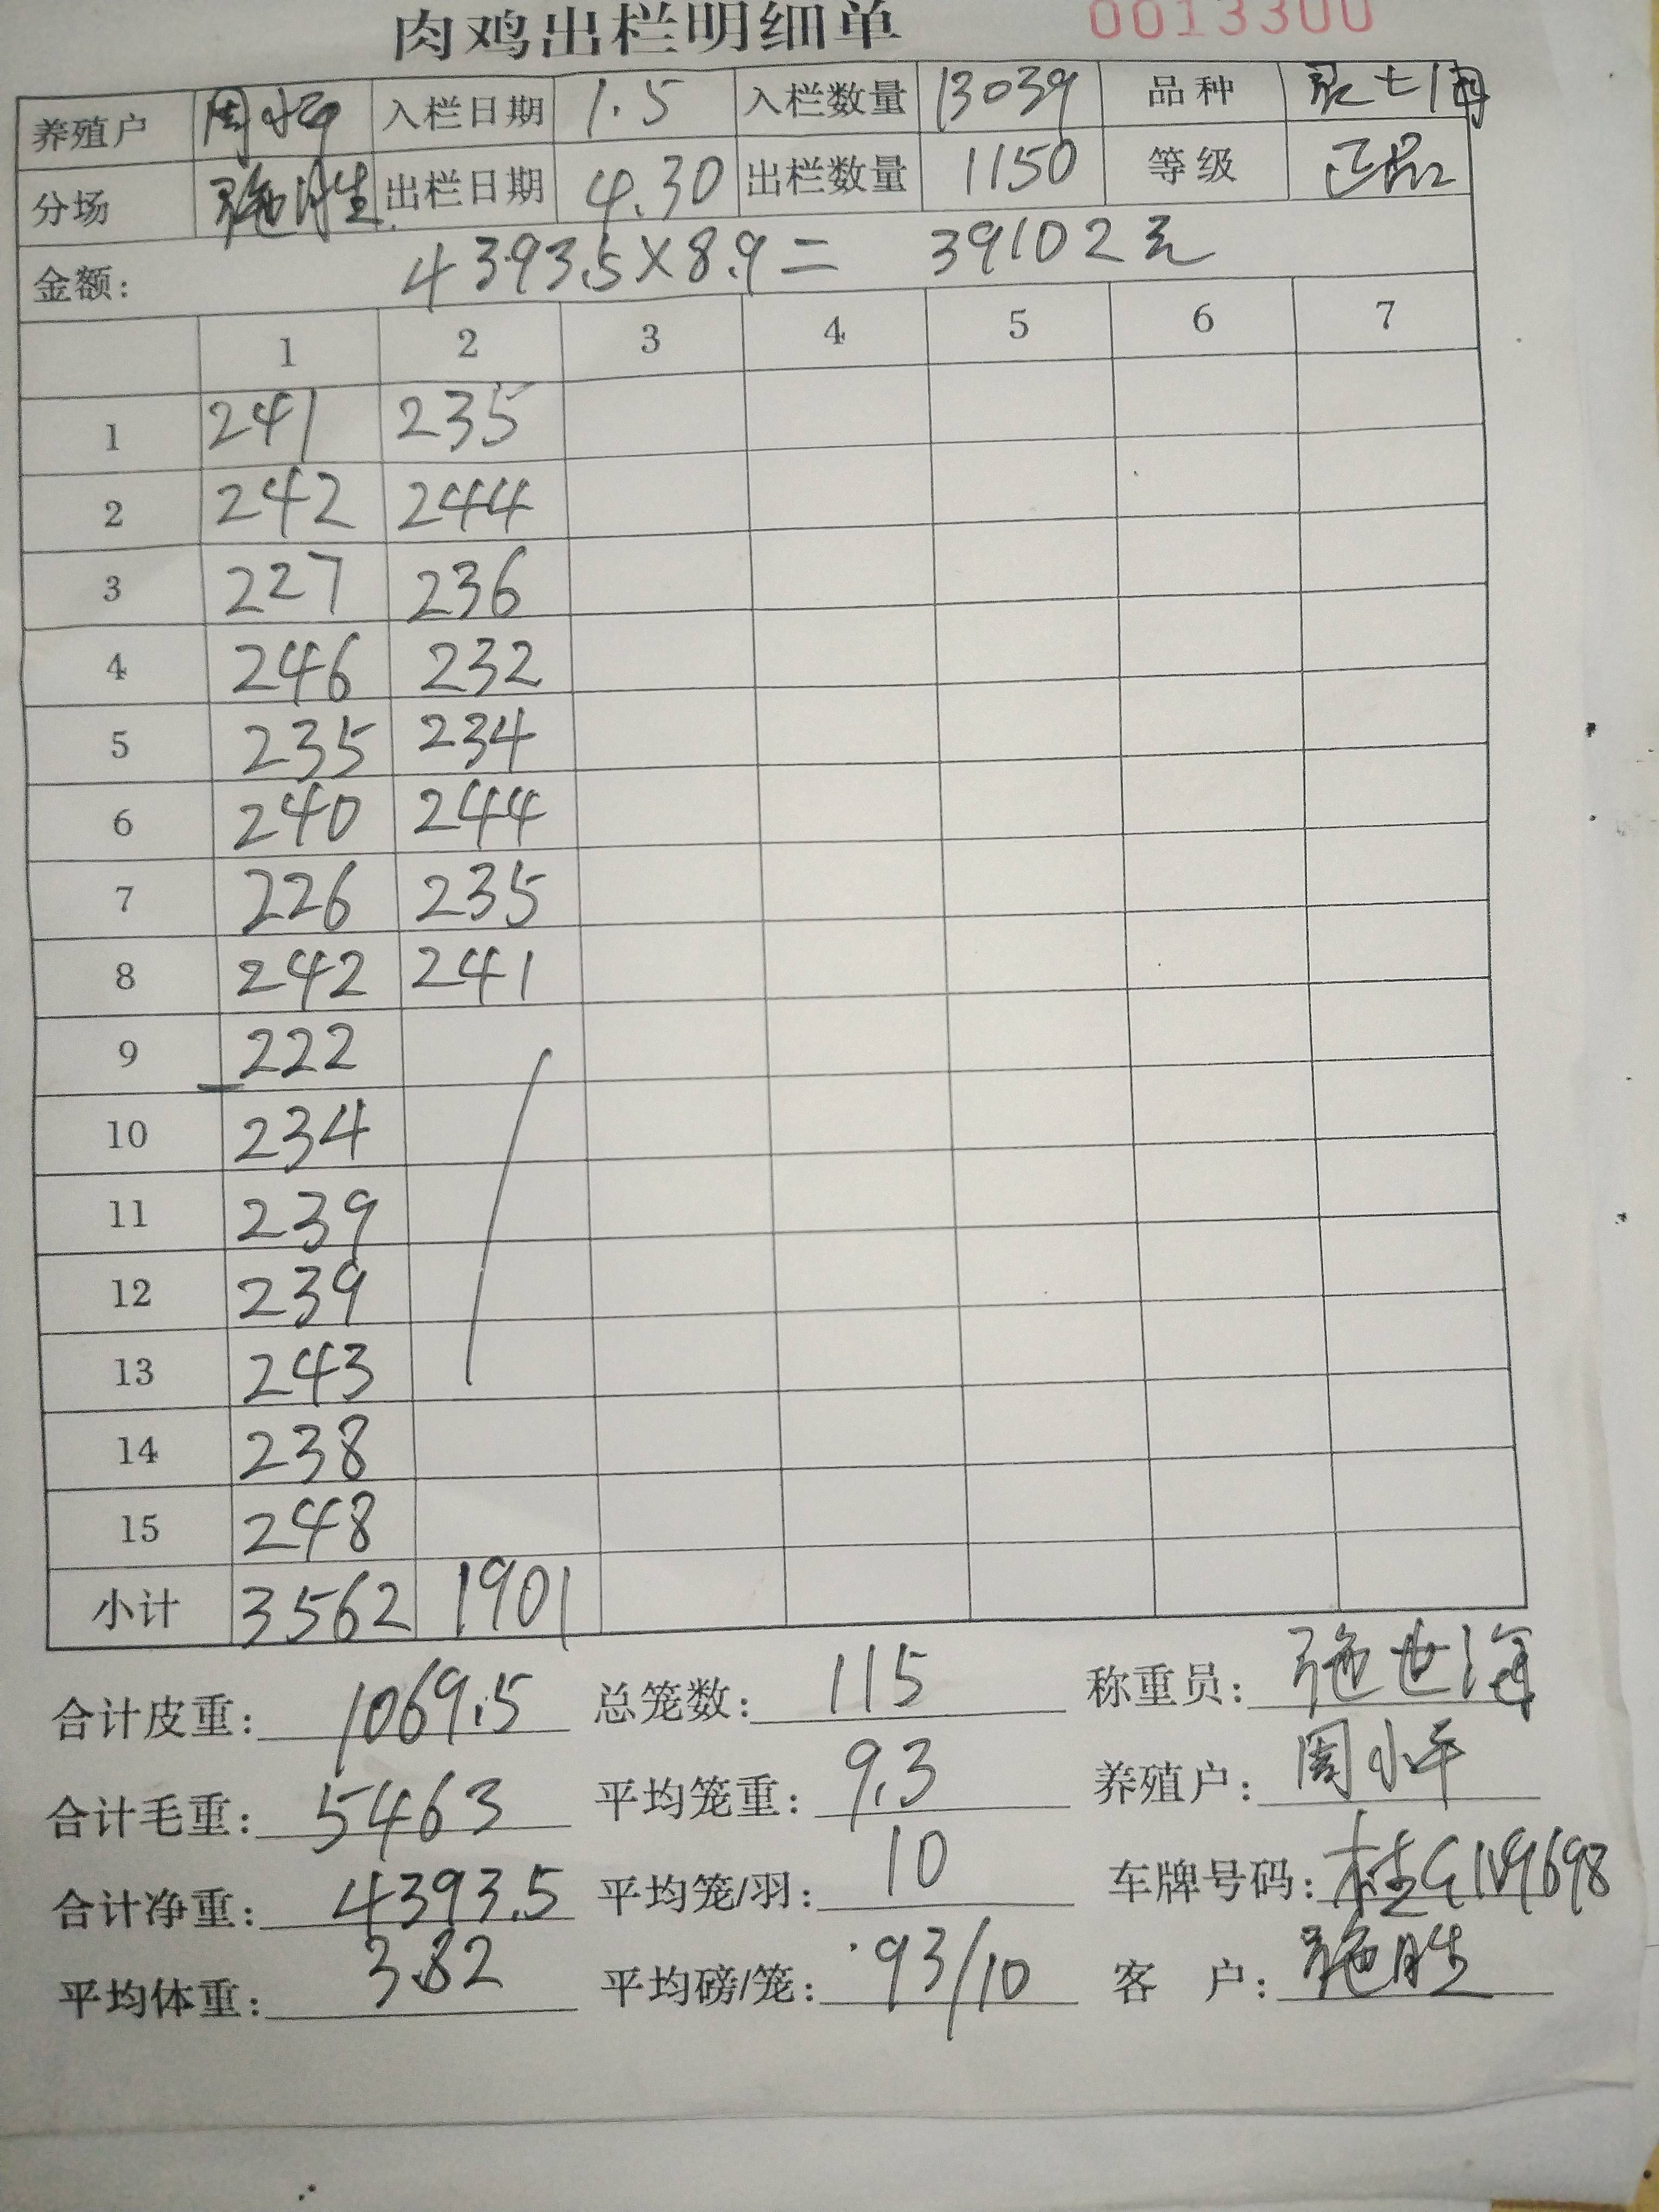 肉鸡出栏明细单 0013300
养殖户 周小平 入栏日期 1.5 入栏数量 13039 品种
分场 出栏日期 4.30 出栏数量 1150 等级 正品
金额: 4393.5×8.9= 39102元
1 2 3 4 5 6 7
1 241 235
2 242 244
3 227 236
4 246 232
5 235 234
6 240 244
7 226 235
8 242 241
9 222
10 234
11 239
12 239
13 243
14 238
15 248
小计 3562 1901
合计皮重: 1069.5 总笼数: 115 称重员: 施世海
合计毛重: 5463 平均笼重: 9.3 养殖户: 周小平
合计净重: 4393.5 平均笼/羽: 10 车牌号码:
平均体重: 3.82 平均磅/笼: 93/10 客 户: 施胜